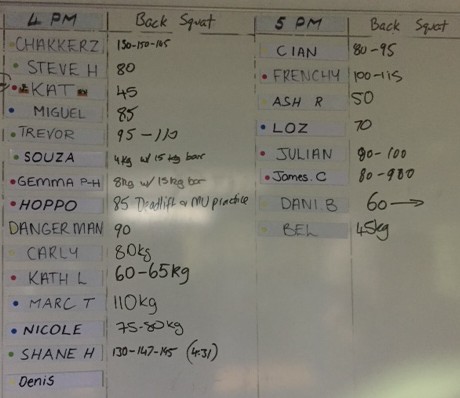 4 PM Back Squat
CHAKKERZ 130-150-165
STEVE H 80
KAT 45
MIGUEL 85
TREVOR 95-110
SOUZA 4kg w/ 15kg bar
GEMMA P-H 8kg w/ 15kg bar
HOPPO 85 Deadlift & MU practice
DANGERMAN 90
CARLY 80kg
KATH L 60-65kg
MARC T 110kg
NICOLE 75-80kg
SHANE H 130-147-145 (4:31)
Denis
5 PM Back Squat
CIAN 80-95
FRENCHY 100-115
ASH R 50
LOZ 70
JULIAN 90-100
James.C 80-980
DANI.B 60 →
BEL 45kg